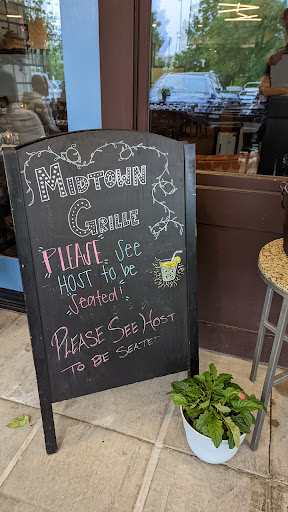 MIDTOWN
GRILLE
PLEASE See
HOST to be
Seated!
PLEASE SEE HOST
TO BE SEATED